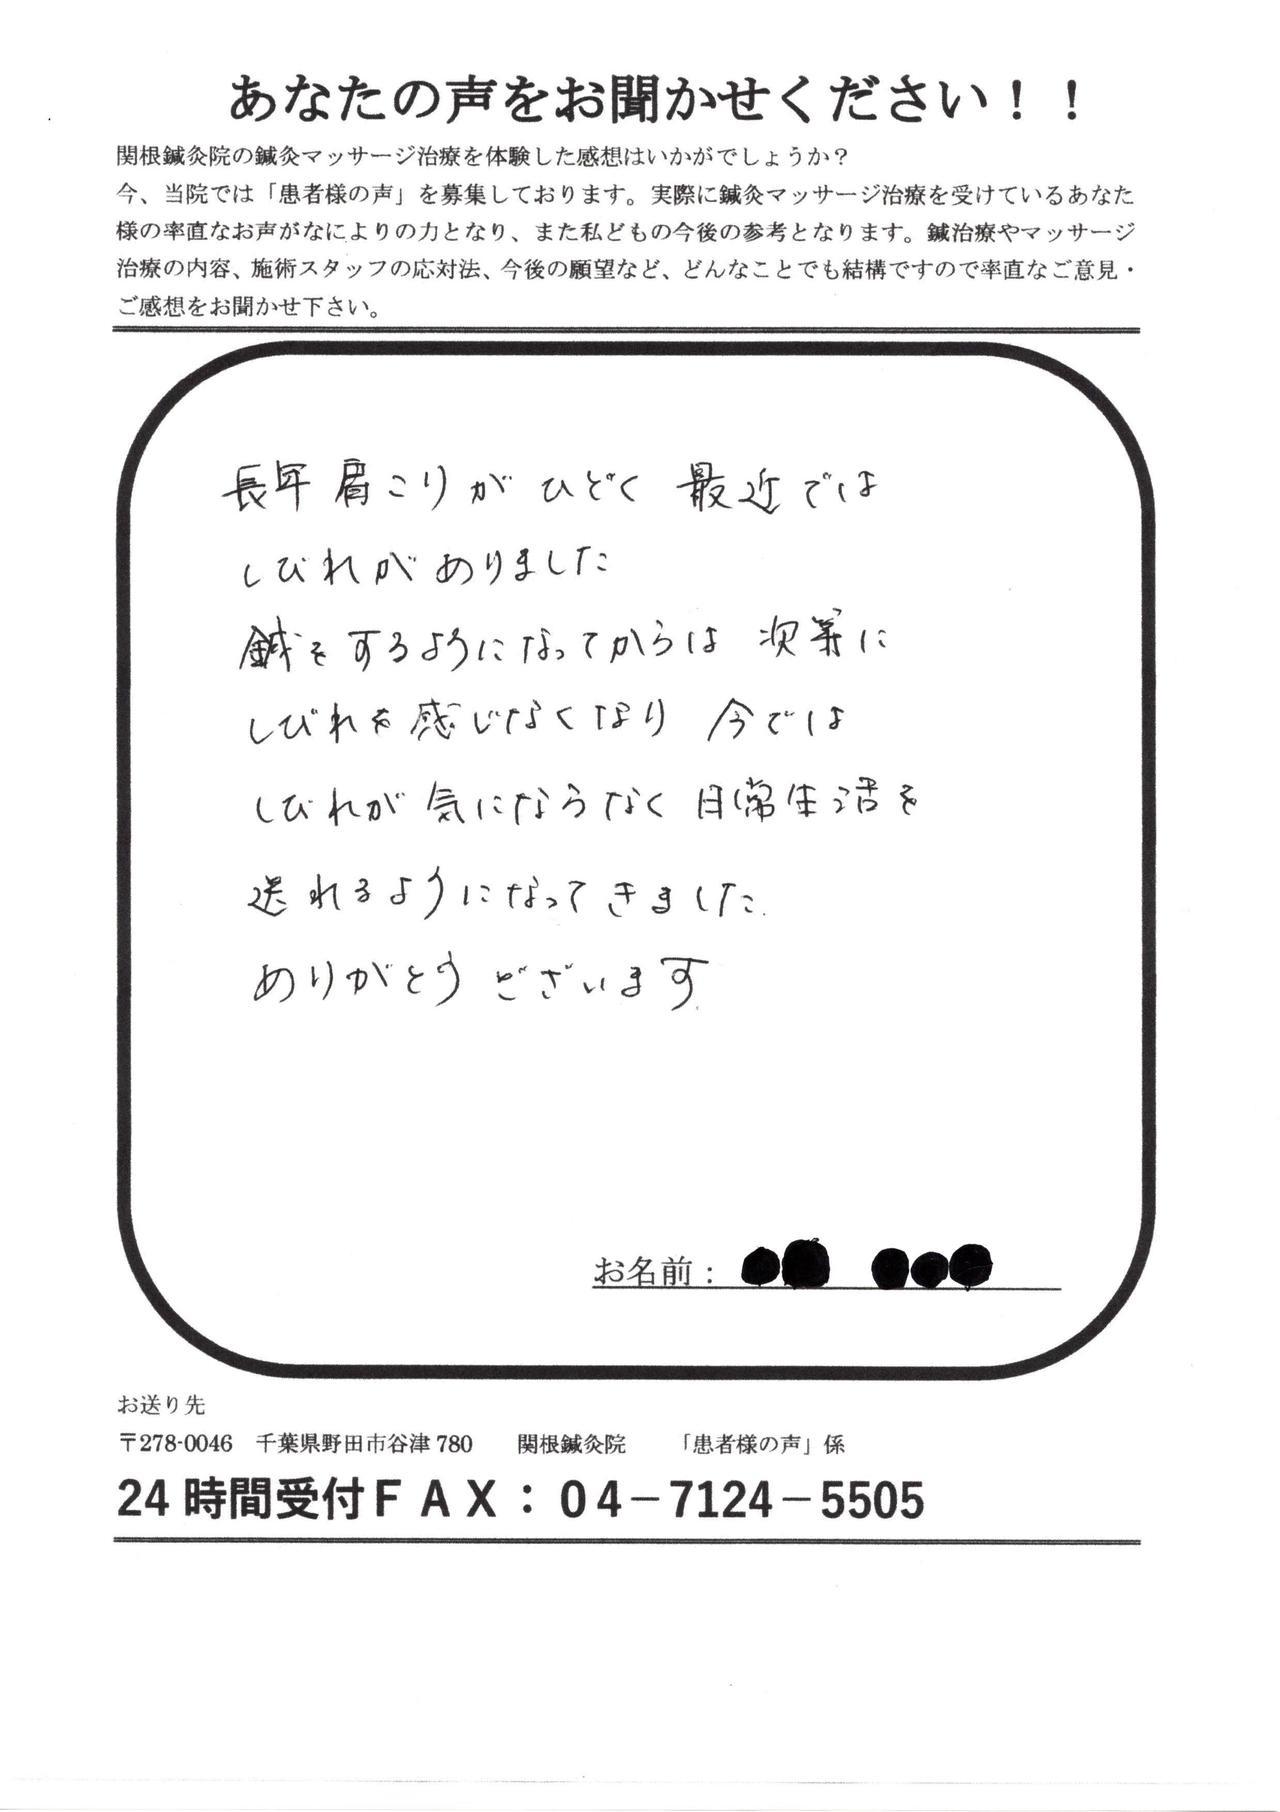 あなたの声をお聞かせください！！
関根鍼灸院の鍼灸マッサージ治療を体験した感想はいかがでしょうか？
今、当院では「患者様の声」を募集しております。実際に鍼灸マッサージ治療を受けているあなた
様の率直なお声がなによりの力となり、また私どもの今後の参考となります。鍼治療やマッサージ
治療の内容、施術スタッフの応対法、今後の願望など、どんなことでも結構ですので率直なご意見・
ご感想をお聞かせ下さい。
長年 肩こりが ひどく 最近では
しびれがありました
鍼をするようになってからは 次第に
しびれを感じなくなり 今では
しびれが気にならなく日常生活を
送れるようになってきました.
ありがとうございます.
お名前：
お送り先
〒278-0046 千葉県野田市谷津 780 関根鍼灸院 「患者様の声」係
24 時間受付ＦＡＸ：０４－7124－5505